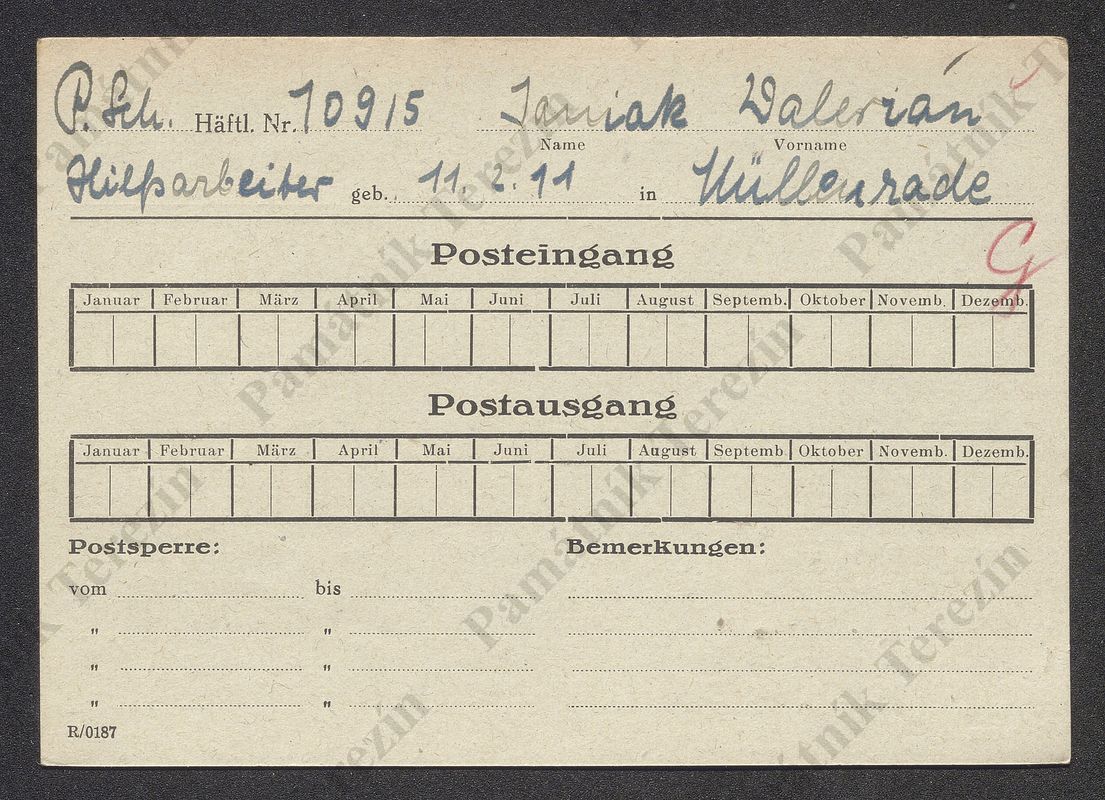 P. Sch. Häftl. Nr. 10915 Janiak Walerian
Name Vorname
Hilfsarbeiter geb. 11. 2. 11 in Müllenrade
Posteingang
Januar Februar März April Mai Juni Juli August Septemb. Oktober Novemb. Dezemb.
Postausgang
Januar Februar März April Mai Juni Juli August Septemb. Oktober Novemb. Dezemb.
Postsperre: Bemerkungen:
vom bis
" "
" "
" "
R/0187
Památník Terezín